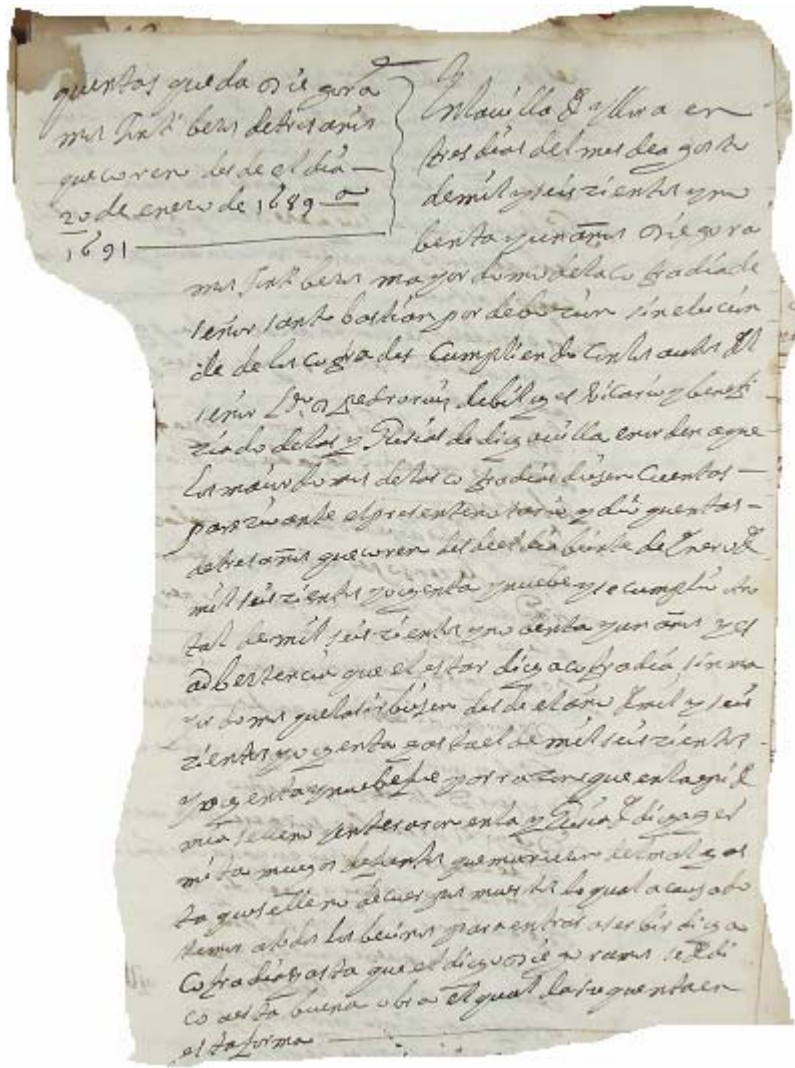 quentas que da Diego ra
mos
de tres años
que coren desde el dia
20 de enero de 1689 a
1691
En la villa de
en
tres dias del mes de agosto
de mil y seis zientos y no
benta y un años Diego ra
mos mayordomo de la cofradia de
señor san bastian por debozion sin elecion
de de los cofrades Cumpliendo con los autos del
señor Ldo Dn Pedro
Vicario y benefi
ziado de las yglesias de digha villa en orden a que
los maiordomos de las cofradias diesen Cuentas
parezio ante el presente notario y dio quentas
de tres años que coren desde el dia beinte de Enero de
mil seis zientos y ogenta y nuebe y se cumplio otro
tal de mil seis zientos y nobenta y un años y es
adbertencia que el estar digha cofradia sin ma
yordomos que la sirbiesen desde el año de mil y seis
zientos y ogenta gasta el de mil seis zientos
y ogenta y nuebe fue por razon que en la epide
mia se
enteraron en la yglesia de digha ger
mita mugos defuntos que murieron del mal
ta que se lleno de cuerpos muertos lo qual a causado
temor a todos los becinos para entrar a serbir digha
Cofradia gasta que el digho Diego ramos se dedi
co a esta buena obra el qual da su quenta en
esta forma